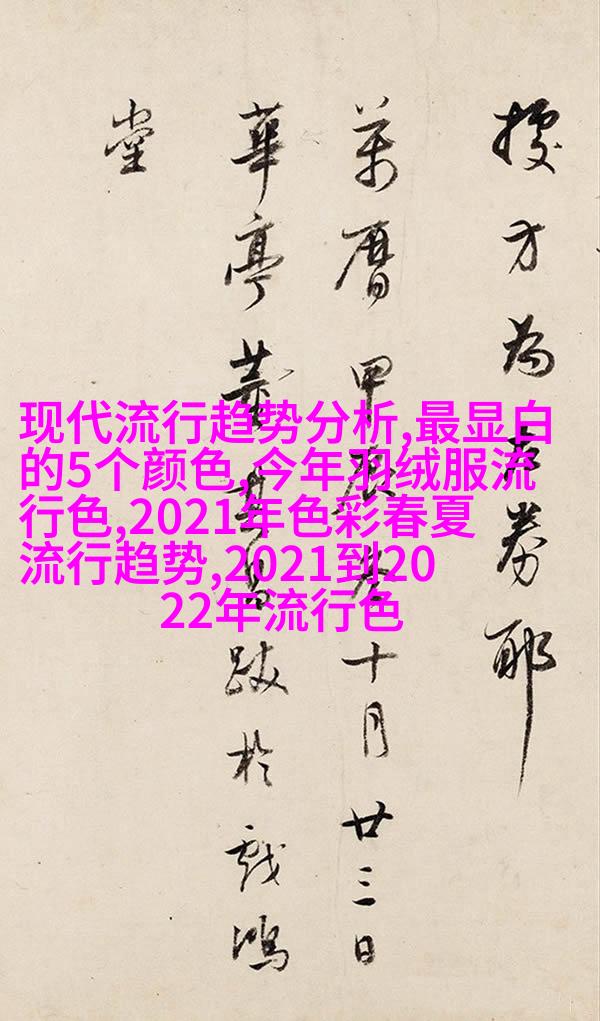 方為左券耶
萬曆甲辰十月廿三日
華亭董其昌跋於戲鴻
堂
现代流行趋势分析,最显白
的5个颜色,今年羽绒服流
行色,2021年色彩春夏
流行趋势,2021到20
22年流行色